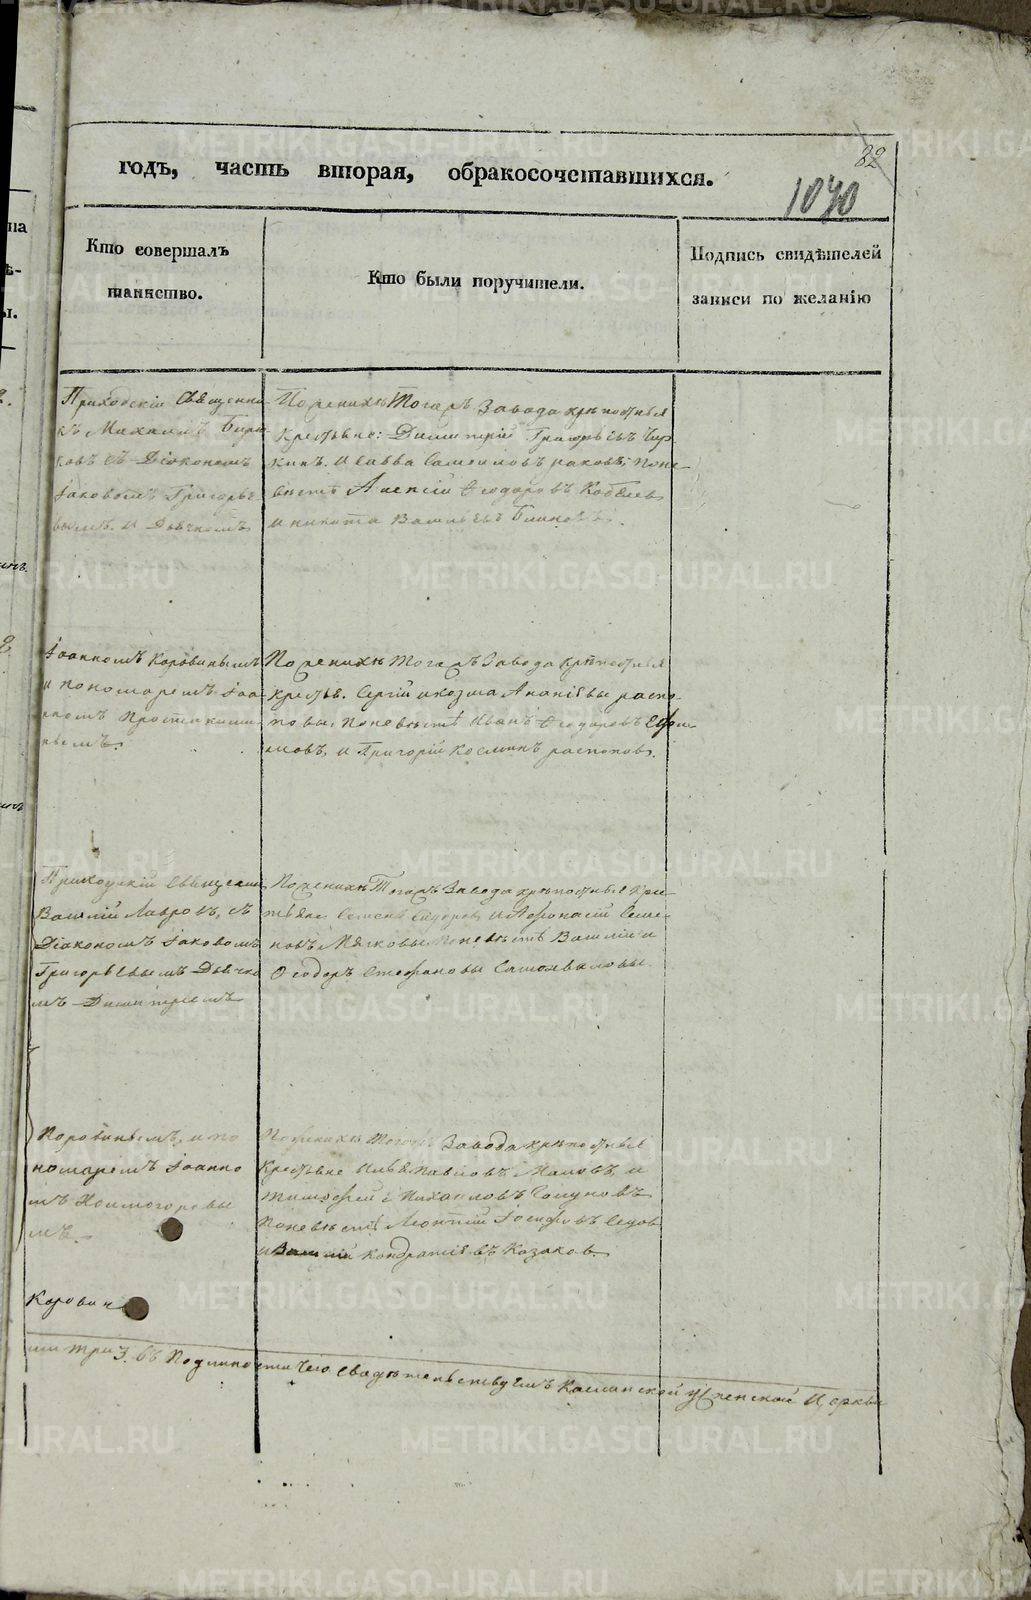 82
годъ, часть вторая, обракосочетавшихся.
1070
Кто совершалъ
таинство.
Кто были поручители.
Подпись свидѣтелей
записи по желанію
Приходскій Священни
къ Михаилъ Бирю
ковъ съ Діакономъ
Іаковомъ Григорье
вымъ. и Дьячкомъ
По женихѣ Тогожъ Завода крѣпостныя
Крестьяне: Димитрій Григорьевъ
и Савва Самойловъ раковъ; поне
вѣстѣ Алексій Ѳеодоровъ Кобелев
и никита Васильевъ Блиновъ.
Іоанномъ Коровинымъ
и пономаремъ Іоа
нномъ Простакиши
нымъ.
По женихѣ Тогожъ Завода Крѣпостныя
Крестья. Сергій икозма Ананіевы распо
повы, поневѣстѣ Иванъ Ѳеодоровъ Ефи
мовъ, и Григорій Козминъ распопов.
Приходскій Священни
Василій Лавровъ, съ
Діакономъ Іаковомъ
Григорьевымъ Дьячко
мъ Димитріемъ
По женихѣ Тогожъ Завода крѣпостные Кре
тьяне Семенъ Сидоров и Афонасій Семе
новъ Мяковы поневѣстѣ Василій и
Ѳеодоръ Стефановы Самохваловы.
Коровинымъ, и по
номаремъ Іоанно
мъ Холмогоровы
мъ.
По женихѣ Тогожъ Завода крѣпостные
Крестьяне Илья Павловъ Маловъ, и
тимофей Михаиловъ
поневѣстѣ Леонтій Іосифовъ Седов
и Василій Кондратіевъ Козаков.
Коровин
или три 3. въ Подлиности чего свидѣтельствуемъ Каслинской Успенской Церкви